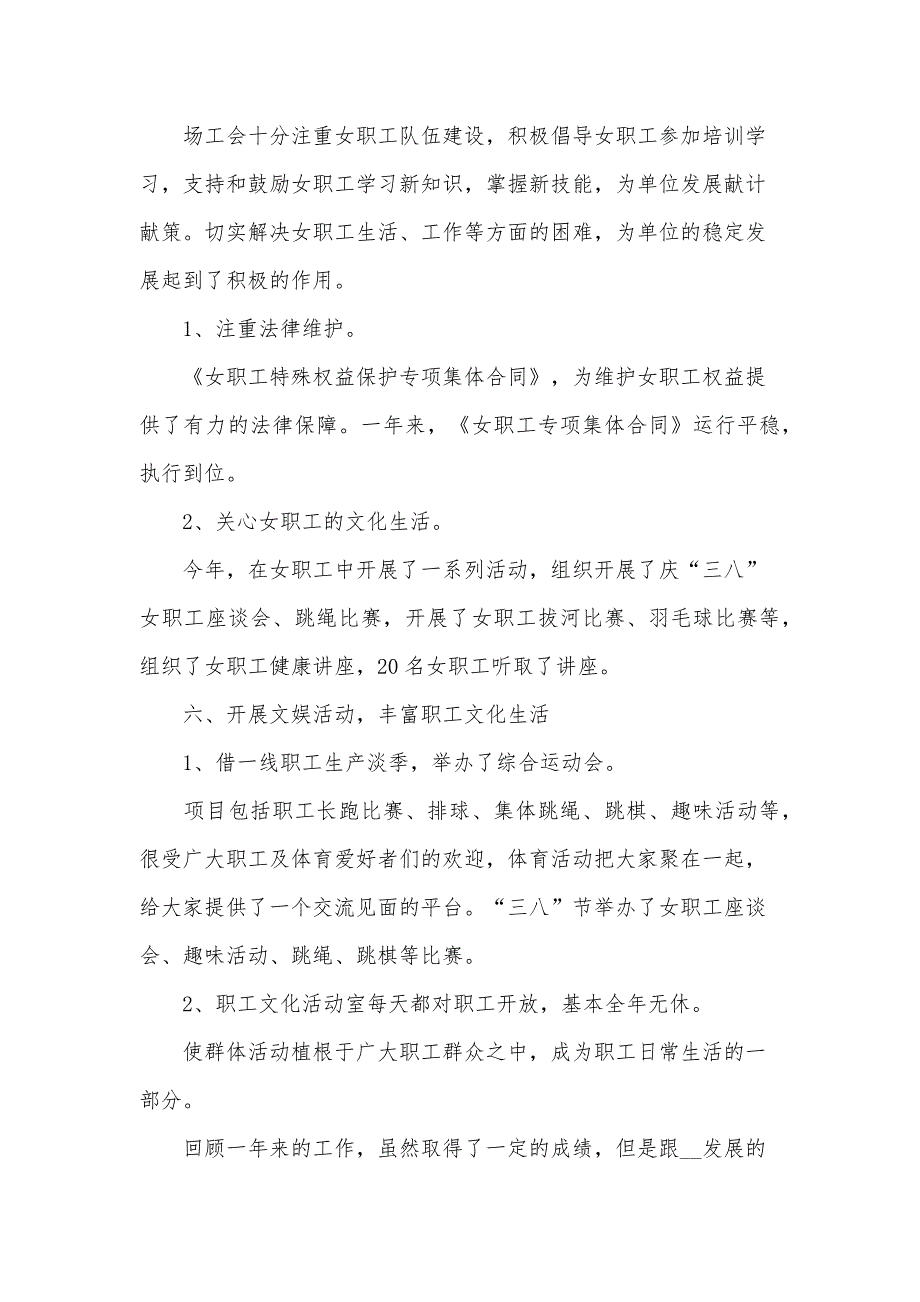 场工会十分注重女职工队伍建设，积极倡导女职工参加培训学
习，支持和鼓励女职工学习新知识，掌握新技能，为单位发展献计
献策。切实解决女职工生活、工作等方面的困难，为单位的稳定发
展起到了积极的作用。
1、注重法律维护。
《女职工特殊权益保护专项集体合同》，为维护女职工权益提
供了有力的法律保障。一年来，《女职工专项集体合同》运行平稳，
执行到位。
2、关心女职工的文化生活。
今年，在女职工中开展了一系列活动，组织开展了庆“三八”
女职工座谈会、跳绳比赛，开展了女职工拔河比赛、羽毛球比赛等，
组织了女职工健康讲座，20 名女职工听取了讲座。
六、开展文娱活动，丰富职工文化生活
1、借一线职工生产淡季，举办了综合运动会。
项目包括职工长跑比赛、排球、集体跳绳、跳棋、趣味活动等，
很受广大职工及体育爱好者们的欢迎，体育活动把大家聚在一起，
给大家提供了一个交流见面的平台。“三八”节举办了女职工座谈
会、趣味活动、跳绳、跳棋等比赛。
2、职工文化活动室每天都对职工开放，基本全年无休。
使群体活动植根于广大职工群众之中，成为职工日常生活的一
部分。
回顾一年来的工作，虽然取得了一定的成绩，但是跟__发展的